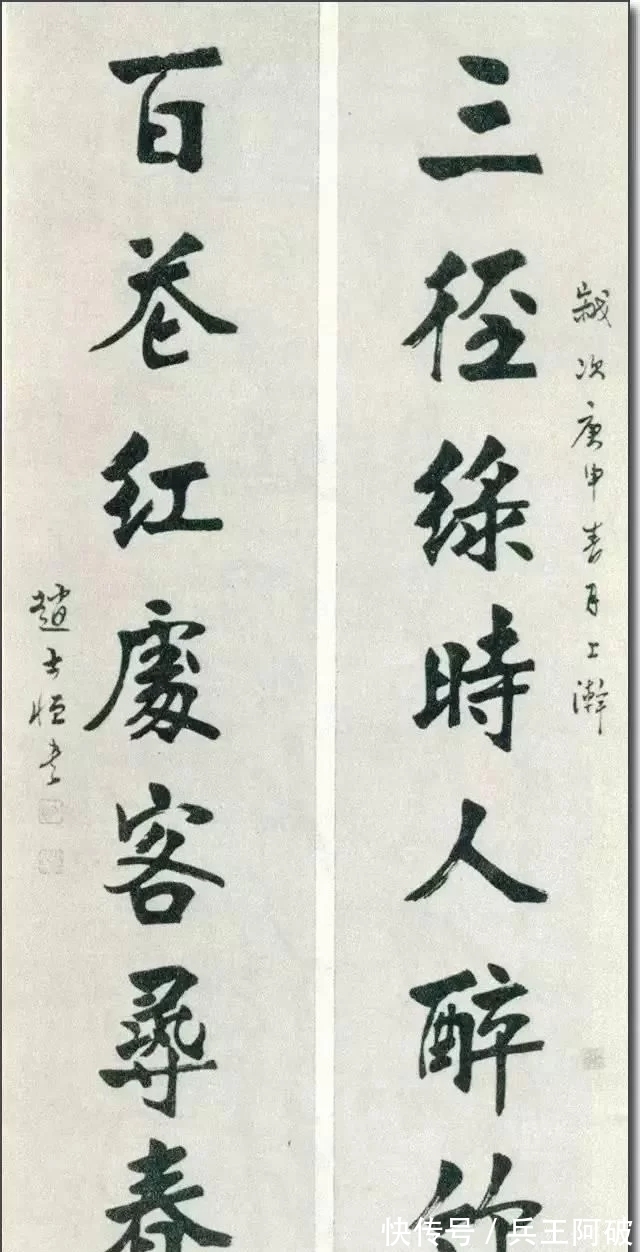 歲次庚申春月上澣
三徑綠時人醉竹
百花紅處客尋春
趙士恒書
快传号 / 兵王阿破